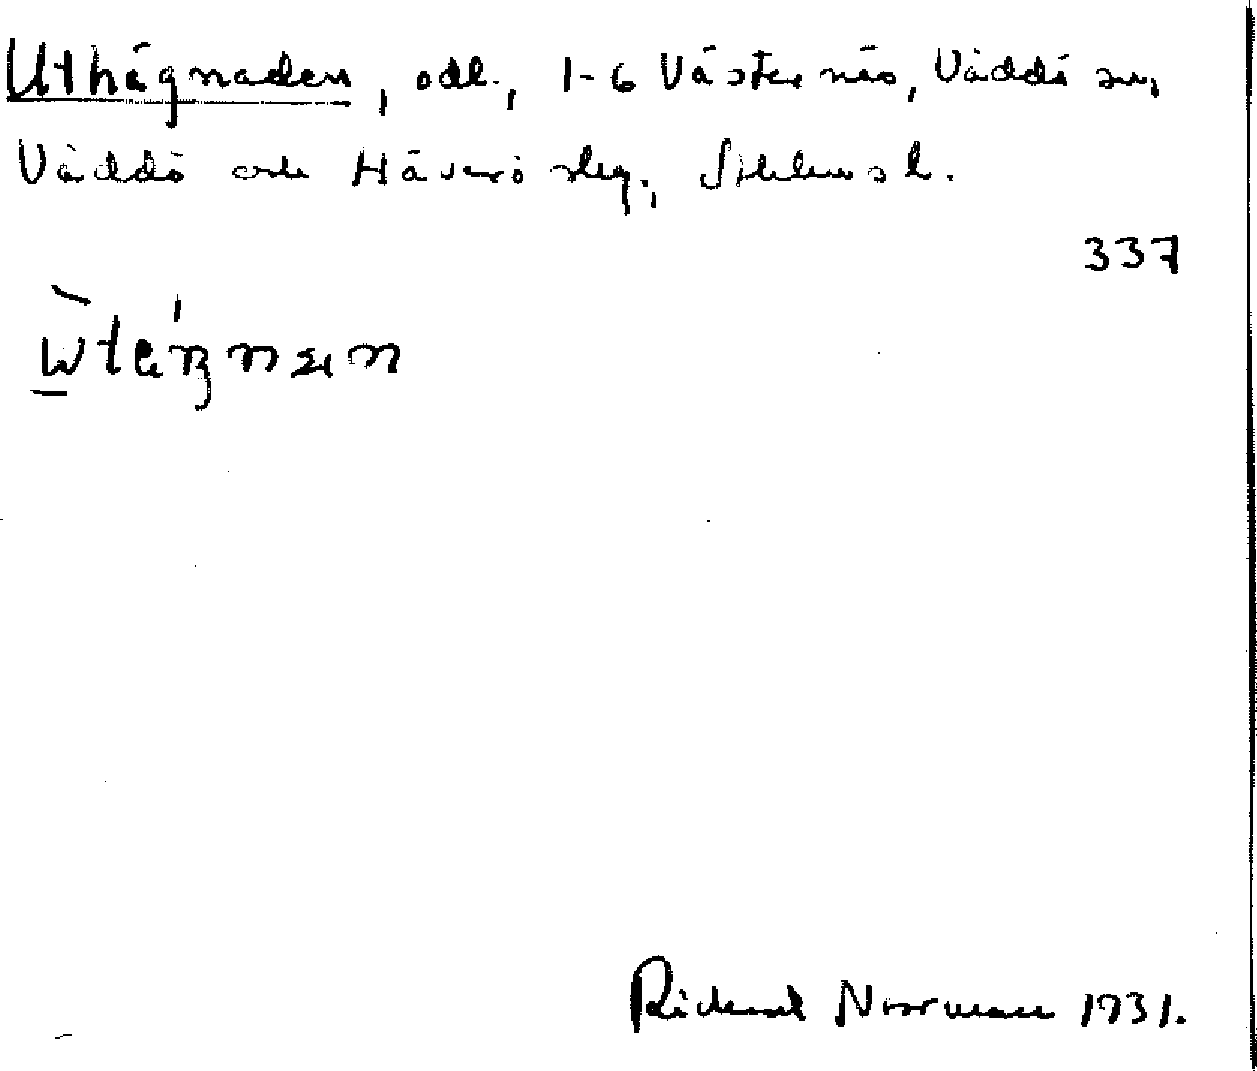 Uthägnaden, odl., 1-6 Västernäs, Väddö sn,
Väddö och Häverö skg., Sthlms l.
337
Richard Norrman 1931.